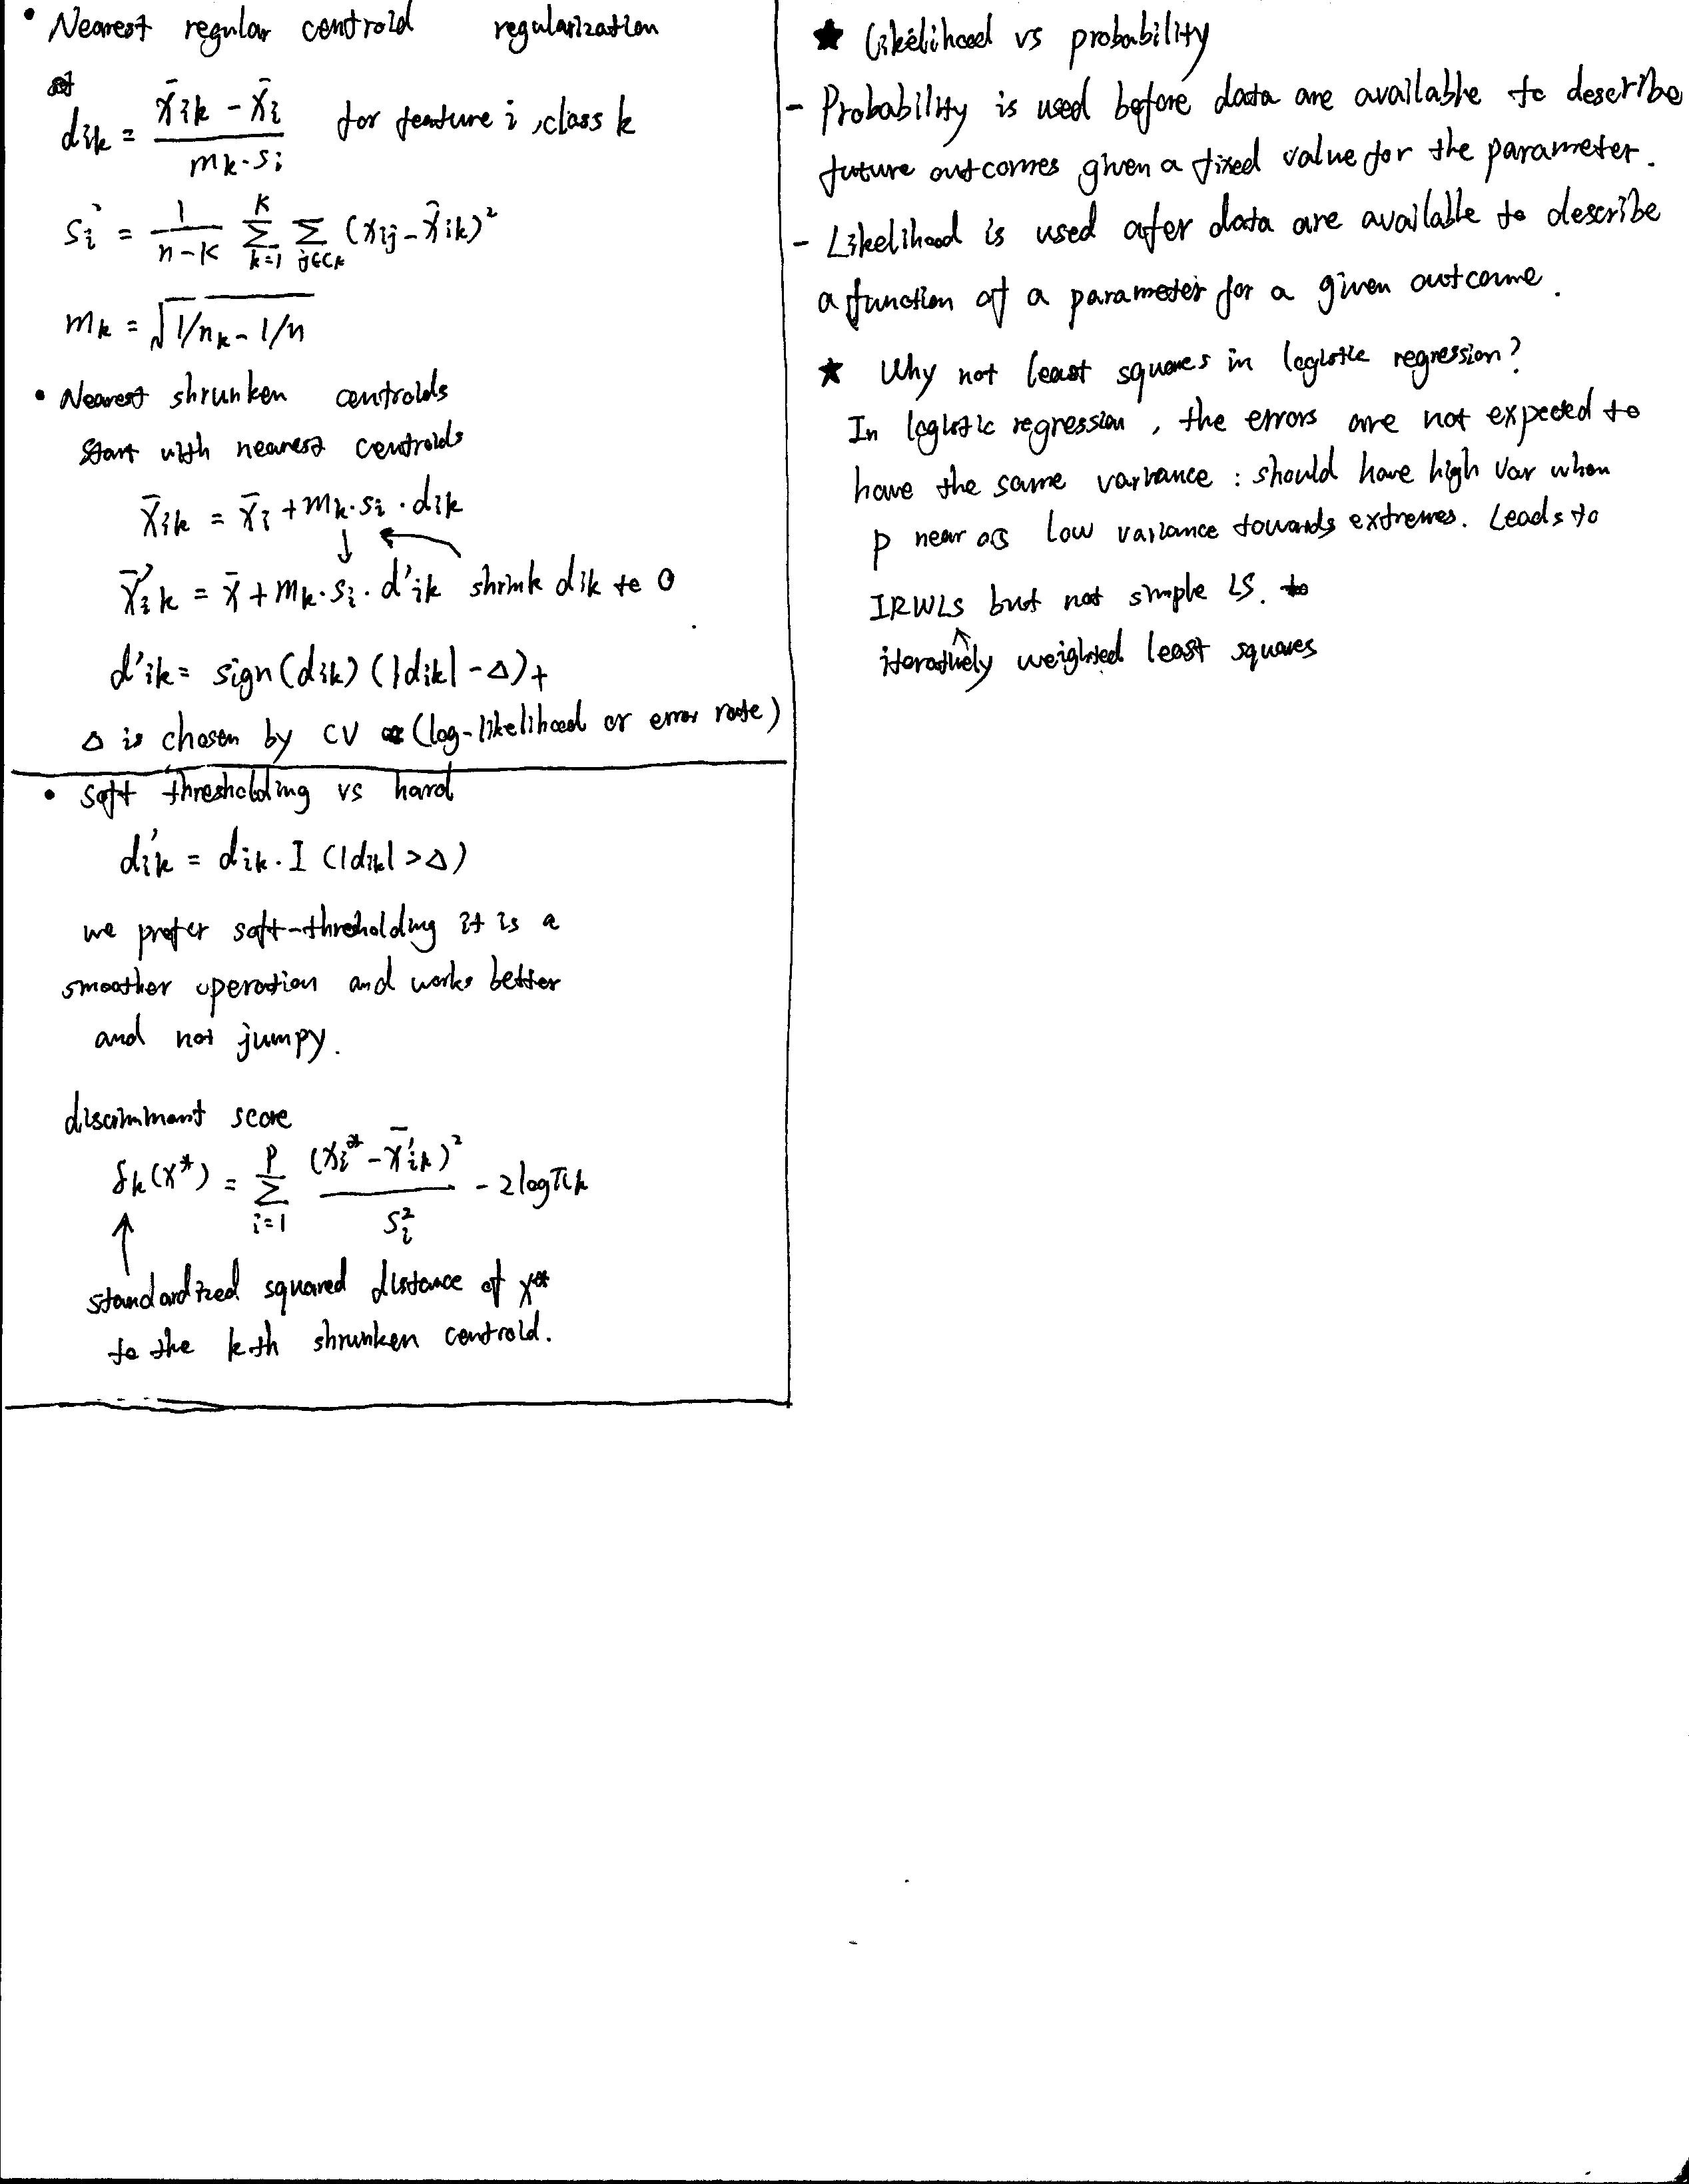 • Nearest regular centroid regularization
dik = (x̄ik - x̄i) / (mk·si) for feature i, class k
si² = 1/(n-K) Σ_{k=1}^{K} Σ_{j∈Ck} (xij - x̄ik)²
mk = √(1/nk - 1/n)
• Nearest shrunken centroids
Start with nearest centroids
x̄ik = x̄i + mk·si·dik
x̄'ik = x̄ + mk·si·d'ik shrink dik to 0
d'ik = sign(dik)(|dik| - Δ)+
Δ is chosen by CV (log-likelihood or error rate)
• soft thresholding vs hard
d'ik = dik·I(|dik|>Δ)
we prefer soft-thresholding it is a
smoother operation and works better
and not jumpy.
discriminant score
δk(x*) = Σ_{i=1}^{p} (xi* - x̄'ik)² / si² - 2logπk
↑
standardized squared distance of x*
to the kth shrunken centroid.
★ Likelihood vs probability
- Probability is used before data are available to describe
future outcomes given a fixed value for the parameter.
- Likelihood is used afer data are available to describe
a function of a parameter for a given outcome.
★ Why not least squares in logistic regression?
In logistic regression, the errors are not expected to
have the same variance : should have high var when
p near 0.5 low variance towards extremes. Leads to
IRWLS but not simple LS.
iteratively weighted least squares